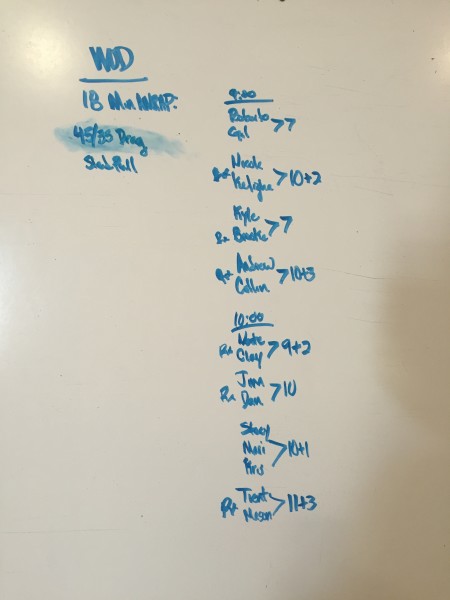 WOD
18 Min AMRAP:
45/35 Drag
Sled Pull
9:00
Roberto
Gal >7
Nicole
Rx Kelsghe >10+2
Kyle
Rx Brooke >7
Rx Andrew
Collin >10+5
10:00
Nate
Rx Clay >9+2
Jim
Rx Dan >10
Stacy
Nuri >10+1
Kris
Rx Trent
Mason >11+3